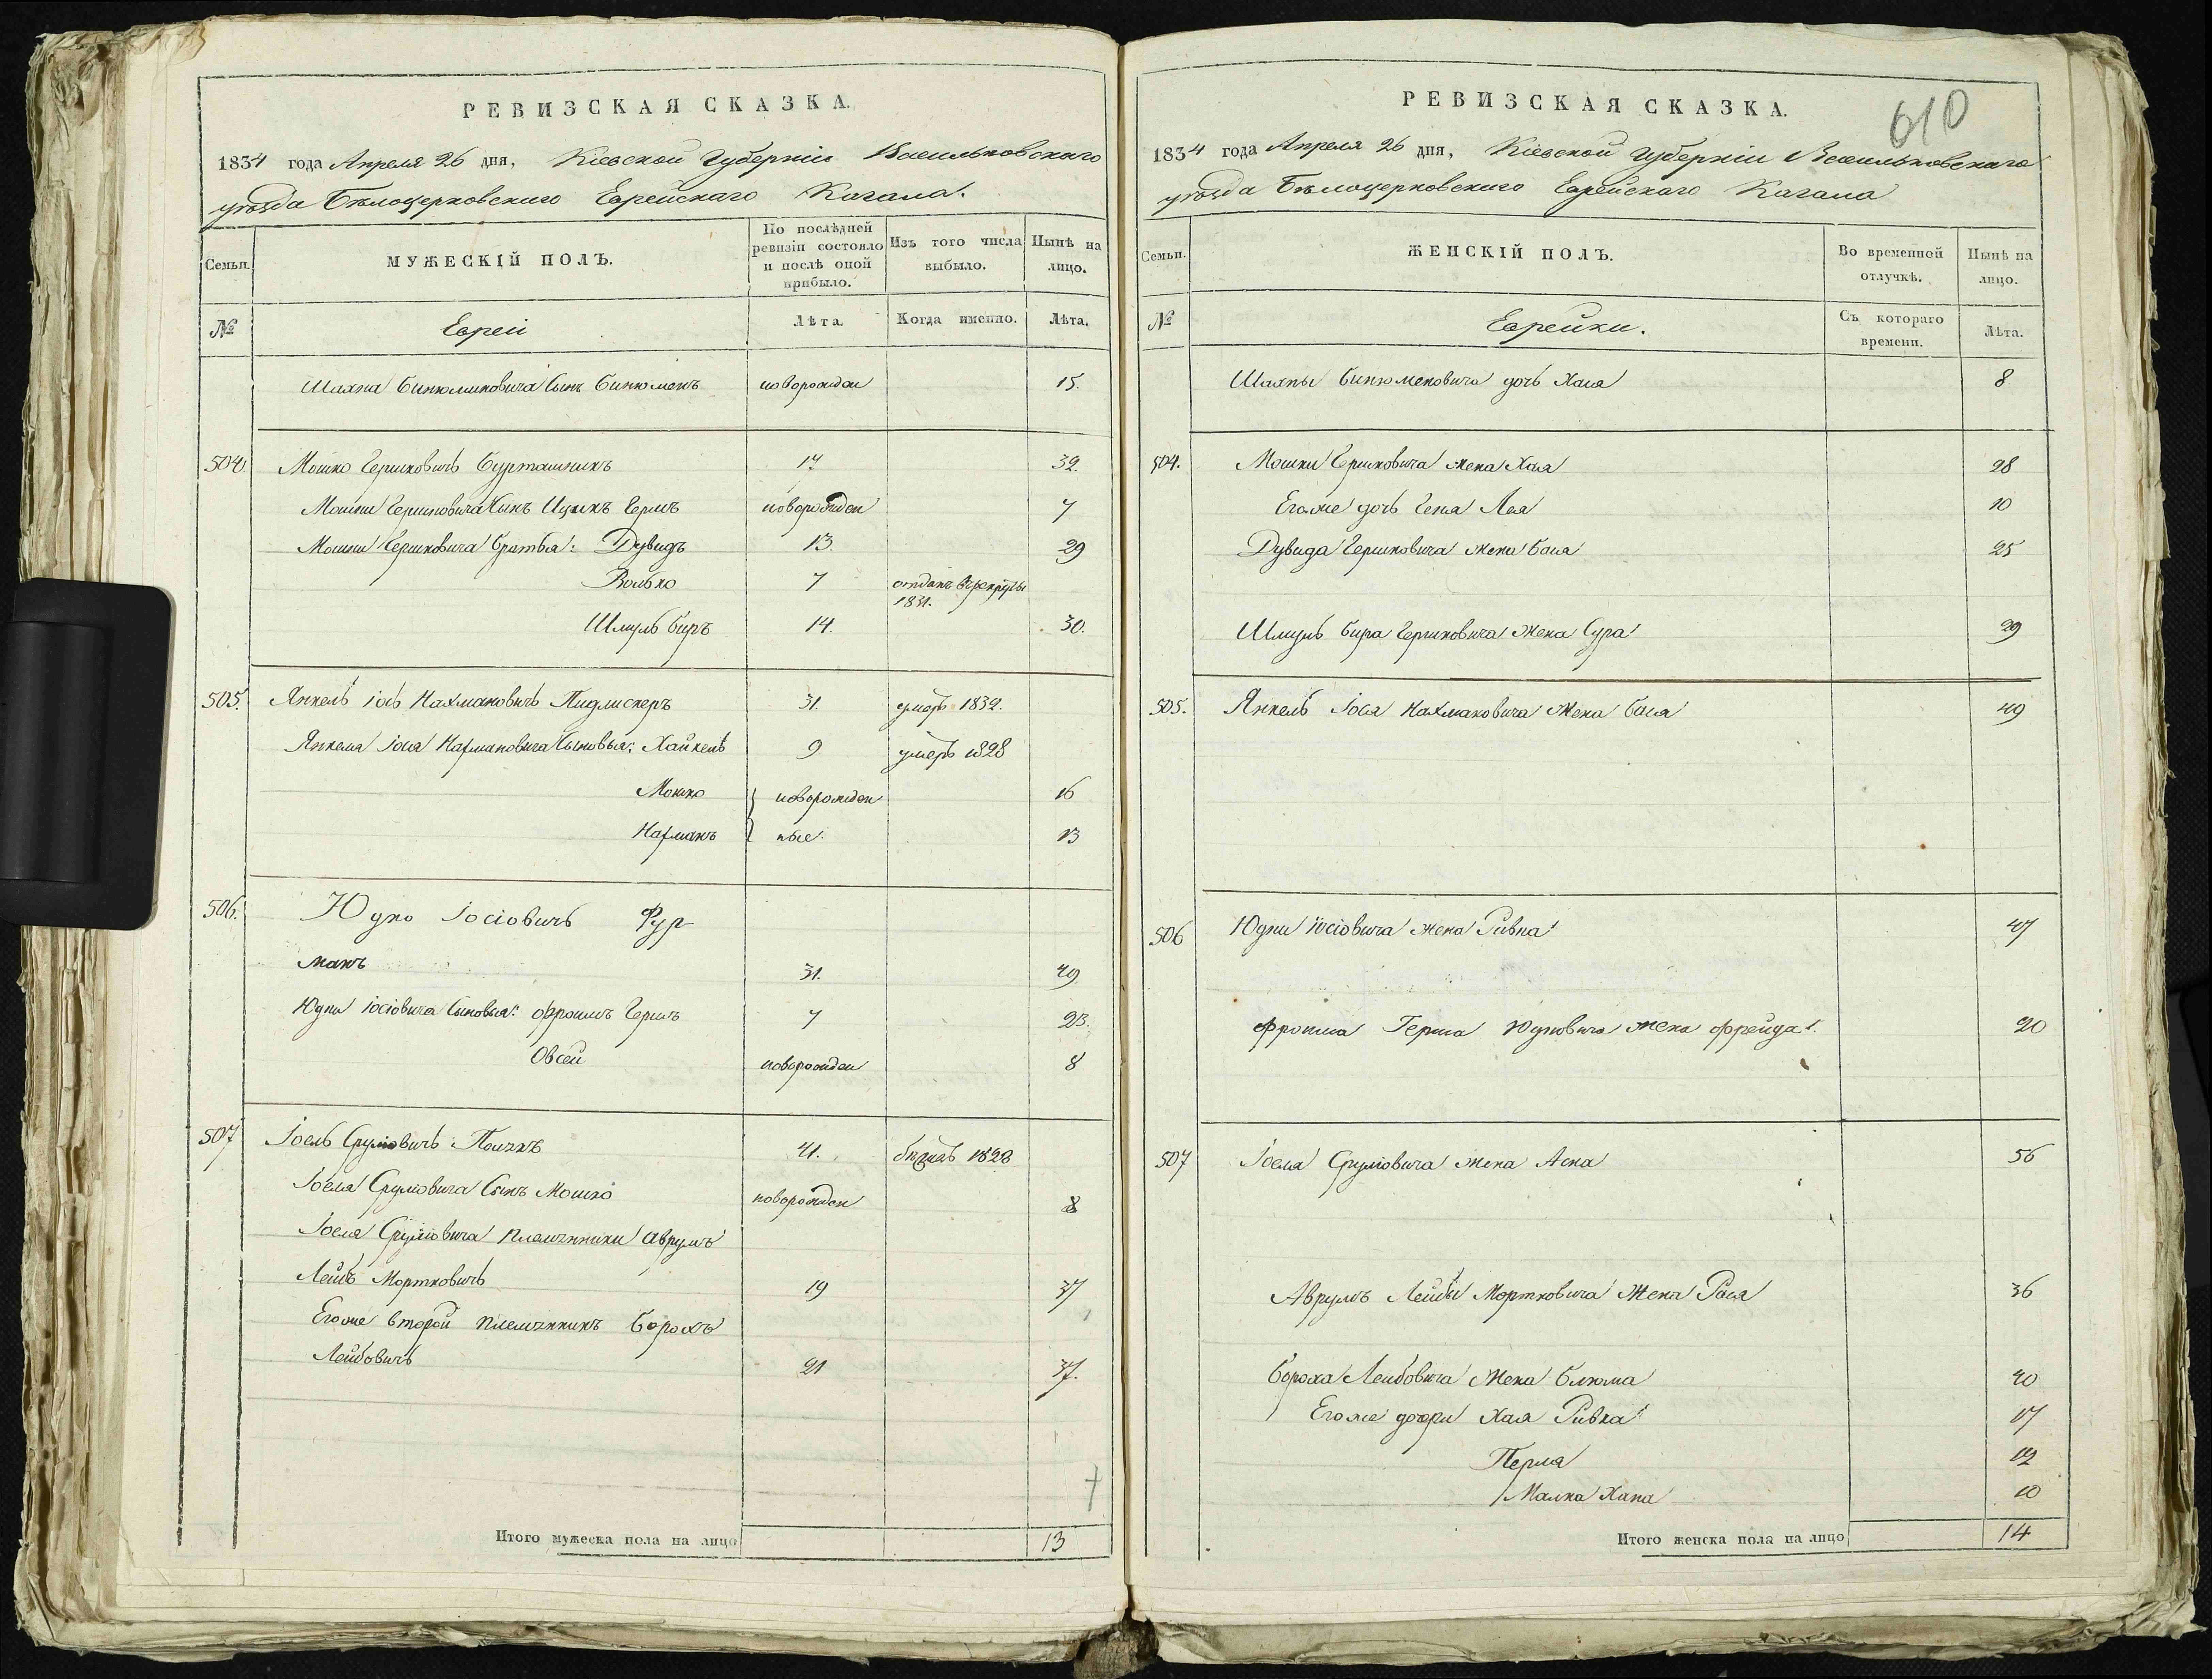 РЕВИЗСКАЯ СКАЗКА.
1834 года Апреля 26 дня, Кіевской Губерніи Васильковскаго
уѣзда Бѣлоцерковскаго Еврейскаго Кагала.
Семьи.
МУЖЕСКІЙ ПОЛЪ.
По послѣдней ревизіи состояло и послѣ оной прибыло.
Изъ того числа выбыло.
Нынѣ на лицо.
№
Евреи
Лѣта.
Когда именно.
Лѣта.
Шаяна Бинюминовича Сынъ Бинюменъ новорожден 15.
504. Мошко Гершковичъ 17 32.
Мошки Гершковича Сынъ Ицикъ Гершъ новорожден 7
Мошки Гершковича братья: Дувидъ 13. 29
Волько 7 отданъ въ рекруты
1831.
Шмуль Беръ 14. 30.
505. Янкель Іось Нахмановичъ 31. умеръ 1832.
Янкеля Іося Нахмановича Сыновья: Хайкель 9 умеръ 1828
Мошко новорожден 16
Нахманъ ные. 13
506. Юдко Іосіовичъ Фур
манъ 31. 49.
Юдки Іосіовича Сыновья: Фроимъ Гершъ 7 23.
Овсей новорожден 8
507 Іоель Сруліовичъ 41. бѣжалъ 1828
Іоеля Сруліовича Сынъ Мошко новорожден 8
Іоеля Сруліовича племянники Аврумъ
Лейбъ Мортковичъ 19 37
Егоже второй племянникъ Борохъ
Лейбовичъ 21 37.
Итого мужеска пола на лицо 13
610
РЕВИЗСКАЯ СКАЗКА.
1834 года Апреля 26 дня, Кіевской Губерніи Васильковскаго
уѣзда Бѣлоцерковскаго Еврейскаго Кагала
Семьи.
ЖЕНСКІЙ ПОЛЪ.
Во временной отлучкѣ.
Нынѣ на лицо.
№
Еврейки.
Съ котораго времени.
Лѣта.
Шаяны Бинюменовича дочь Хая 8
504. Мошки Гершковича жена Хая 28
Егоже дочь Геня Лея 10
Дувида Гершковича жена Бася 25
Шмуль Бера Гершковича жена Сура 29
505. Янкель Іося Нахмановича жена Бася 49
506 Юдки Іосіовича жена Ривка 47
Фроима Герша Юдковича жена Фрейда 20
507 Іоеля Сруліовича жена 56
Аврумъ Лейбы Мортковича жена Рася 36
Бороха Лейбовича жена Блюма 40
Егоже дочери Хая Ривка 17
Перля 12
Малка Хана 10
Итого женска пола на лицо 14